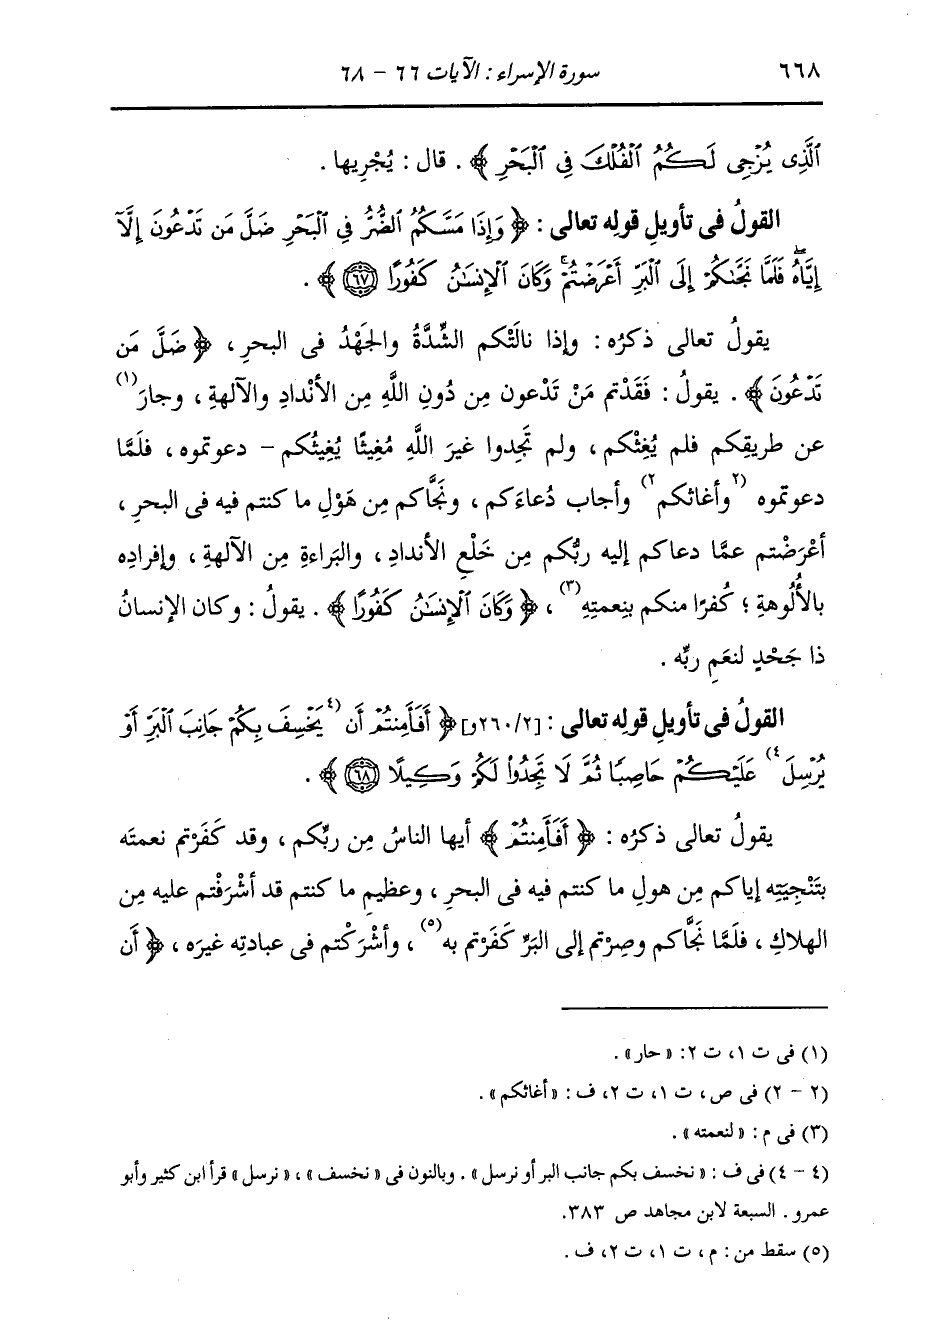 ٦٦٨ سورة الإسراء : الآيات ٦٦ - ٦٨
ٱلَّذِى يُزْجِى لَكُمُ ٱلْفُلْكَ فِى ٱلْبَحْرِ ﴾ . قال : يُجْرِيها .
القولُ فى تأويلِ قولِه تعالى : ﴿ وَإِذَا مَسَّكُمُ ٱلضُّرُّ فِى ٱلْبَحْرِ ضَلَّ مَن تَدْعُونَ إِلَّآ
إِيَّاهُ ۖ فَلَمَّا نَجَّىٰكُمْ إِلَى ٱلْبَرِّ أَعْرَضْتُمْ ۚ وَكَانَ ٱلْإِنسَـٰنُ كَفُورًا ﴿٦٧﴾ ﴾ .
يقولُ تعالى ذكرُه : وإذا نالَتْكم الشِّدَّةُ والجَهْدُ فى البحرِ ، ﴿ ضَلَّ مَن
تَدْعُونَ ﴾ . يقولُ : فَقَدْتم مَنْ تَدْعون مِن دُونِ اللَّهِ مِن الأنْدادِ والآلهةِ ، وجارَ(١)
عن طريقِكم فلم يُغِثْكم ، ولم تَجِدوا غيرَ اللَّهِ مُغِيثًا يُغِيثُكم - دعوتموه ، فلَمَّا
دعوتموه (٢وأغاثكم٢) وأجاب دُعاءَكم ، ونَجَّاكم مِن هَوْلِ ما كنتم فيه فى البحرِ ،
أعْرَضْتم عمَّا دعاكم إليه ربُّكم مِن خَلْعِ الأندادِ ، والبَراءةِ مِن الآلهةِ ، وإفرادِه
بالأُلُوهةِ ؛ كُفرًا منكم بنِعمتِه(٣) ، ﴿ وَكَانَ ٱلْإِنسَـٰنُ كَفُورًا ﴾ . يقولُ : وكان الإنسانُ
ذا جَحْدٍ لنعَمِ ربِّه .
القولُ فى تأويلِ قولِه تعالى : [٢٦٠/٢و] ﴿ أَفَأَمِنتُمْ أَن (٤يَخْسِفَ بِكُمْ جَانِبَ ٱلْبَرِّ أَوْ
يُرْسِلَ٤) عَلَيْكُمْ حَاصِبًا ثُمَّ لَا تَجِدُوا۟ لَكُمْ وَكِيلًا ﴿٦٨﴾ ﴾ .
يقولُ تعالى ذكرُه : ﴿ أَفَأَمِنتُمْ ﴾ أيها الناسُ مِن ربِّكم ، وقد كَفَرْتم نعمتَه
بتَنْجِيَتِه إياكم مِن هولِ ما كنتم فيه فى البحرِ ، وعظيمِ ما كنتم قد أشْرَفْتم عليه مِن
الهلاكِ ، فلَمَّا نَجَّاكم وصِرْتم إلى البَرِّ كَفَرْتم به(٥) ، وأشْرَكْتم فى عبادتِه غيرَه ، ﴿ أَن
(١) فى ت ١، ت ٢: « حار » .
(٢ - ٢) فى ص ، ت ١، ت ٢، ف : « أغاثكم » .
(٣) فى م : « لنعمته » .
(٤ - ٤) فى ف : « نخسف بكم جانب البر أو نرسل » . وبالنون فى « نخسف » ، « نرسل » قرأ ابن كثير وأبو
عمرو . السبعة لابن مجاهد ص ٣٨٣.
(٥) سقط من : م ، ت ١، ت ٢، ف .